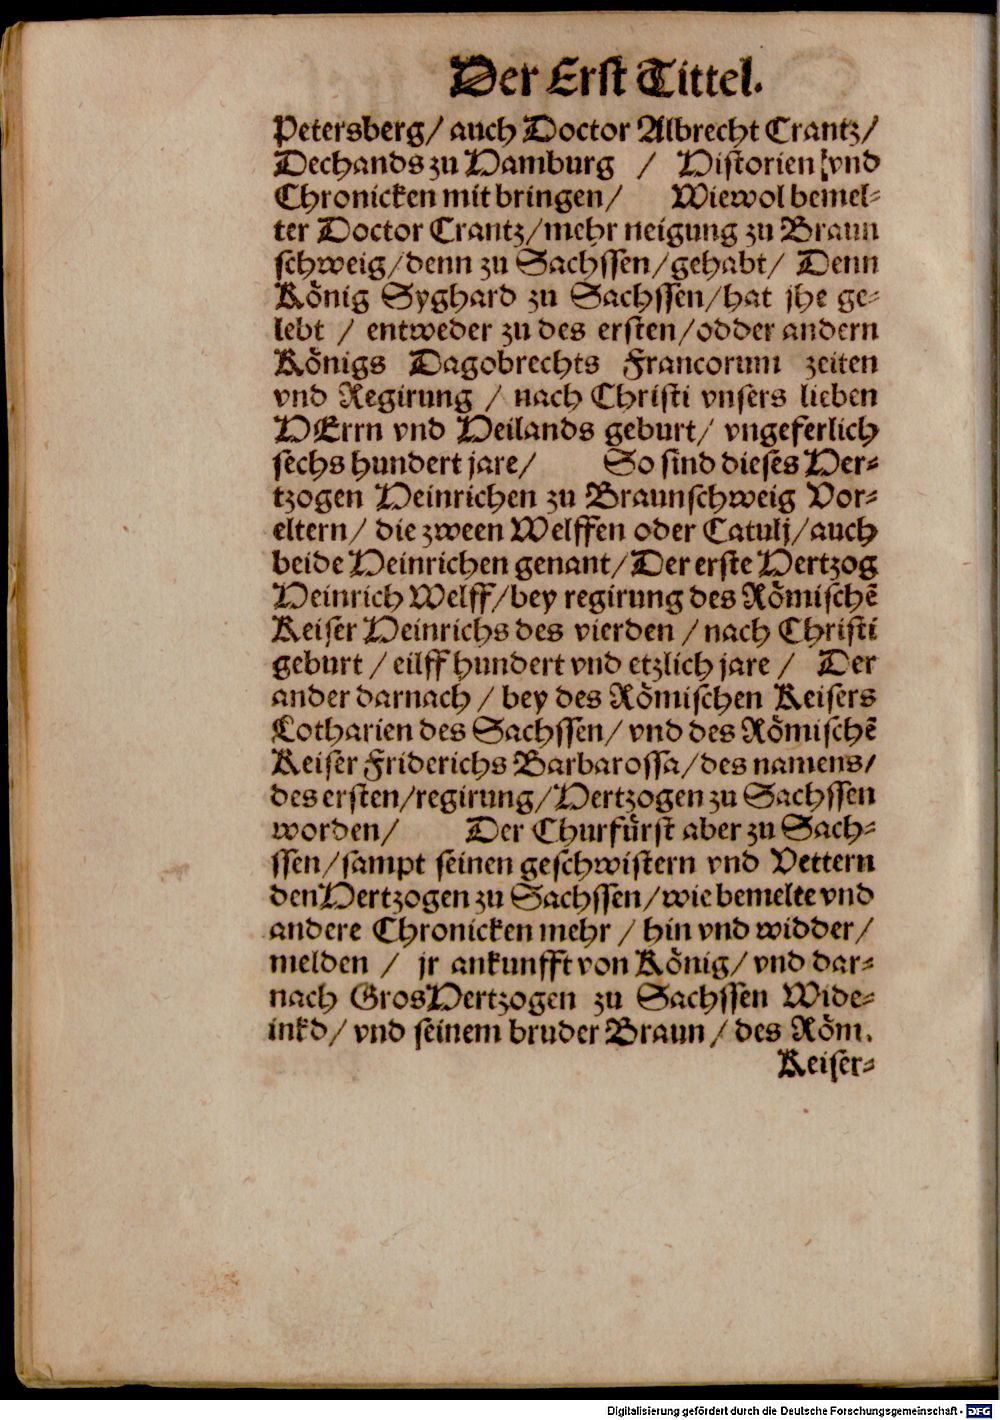 Der Erst Tittel.
Petersberg/ auch Doctor Albrecht Crantz/
Dechands zu Hamburg / Historien vnd
Chronicken mit bringen/ Wiewol bemel⸗
ter Doctor Crantz/mehr neigung zu Braun
schweig/denn zu Sachssen/gehabt/ Denn
König Syghard zu Sachssen/hat jhe ge⸗
lebt / entweder zu des ersten/odder andern
Königs Dagobrechts Francorum zeiten
vnd Regirung / nach Christi vnsers lieben
HErrn vnd Heilands geburt/ vngeferlich
sechs hundert jare/ So sind dieses Her⸗
tzogen Heinrichen zu Braunschweig Vor⸗
eltern/ die zween Welffen oder Catulj/auch
beide Heinrichen genant/Der erste Hertzog
Heinrich Welff/bey regirung des Römischẽ
Keiser Heinrichs des vierden /nach Christi
geburt /eilff hundert vnd etzlich jare / Der
ander darnach / bey des Römischen Keisers
Lotharien des Sachssen/ vnd des Römischẽ
Keiser Friderichs Barbarossa/des namens/
des ersten/regirung/Hertzogen zu Sachssen
worden/ Der Churfürst aber zu Sach⸗
ssen/sampt seinen geschwistern vnd Vettern
den Hertzogen zu Sachssen/wie bemelte vnd
andere Chronicken mehr / hin vnd widder/
melden / jr ankunfft von König/ vnd dar⸗
nach GrosHertzogen zu Sachssen Wide⸗
inkd/ vnd seinem bruder Braun/ des Röm.
Keiser⸗
Digitalisierung gefördert durch die Deutsche Forschungsgemeinschaft - DFG